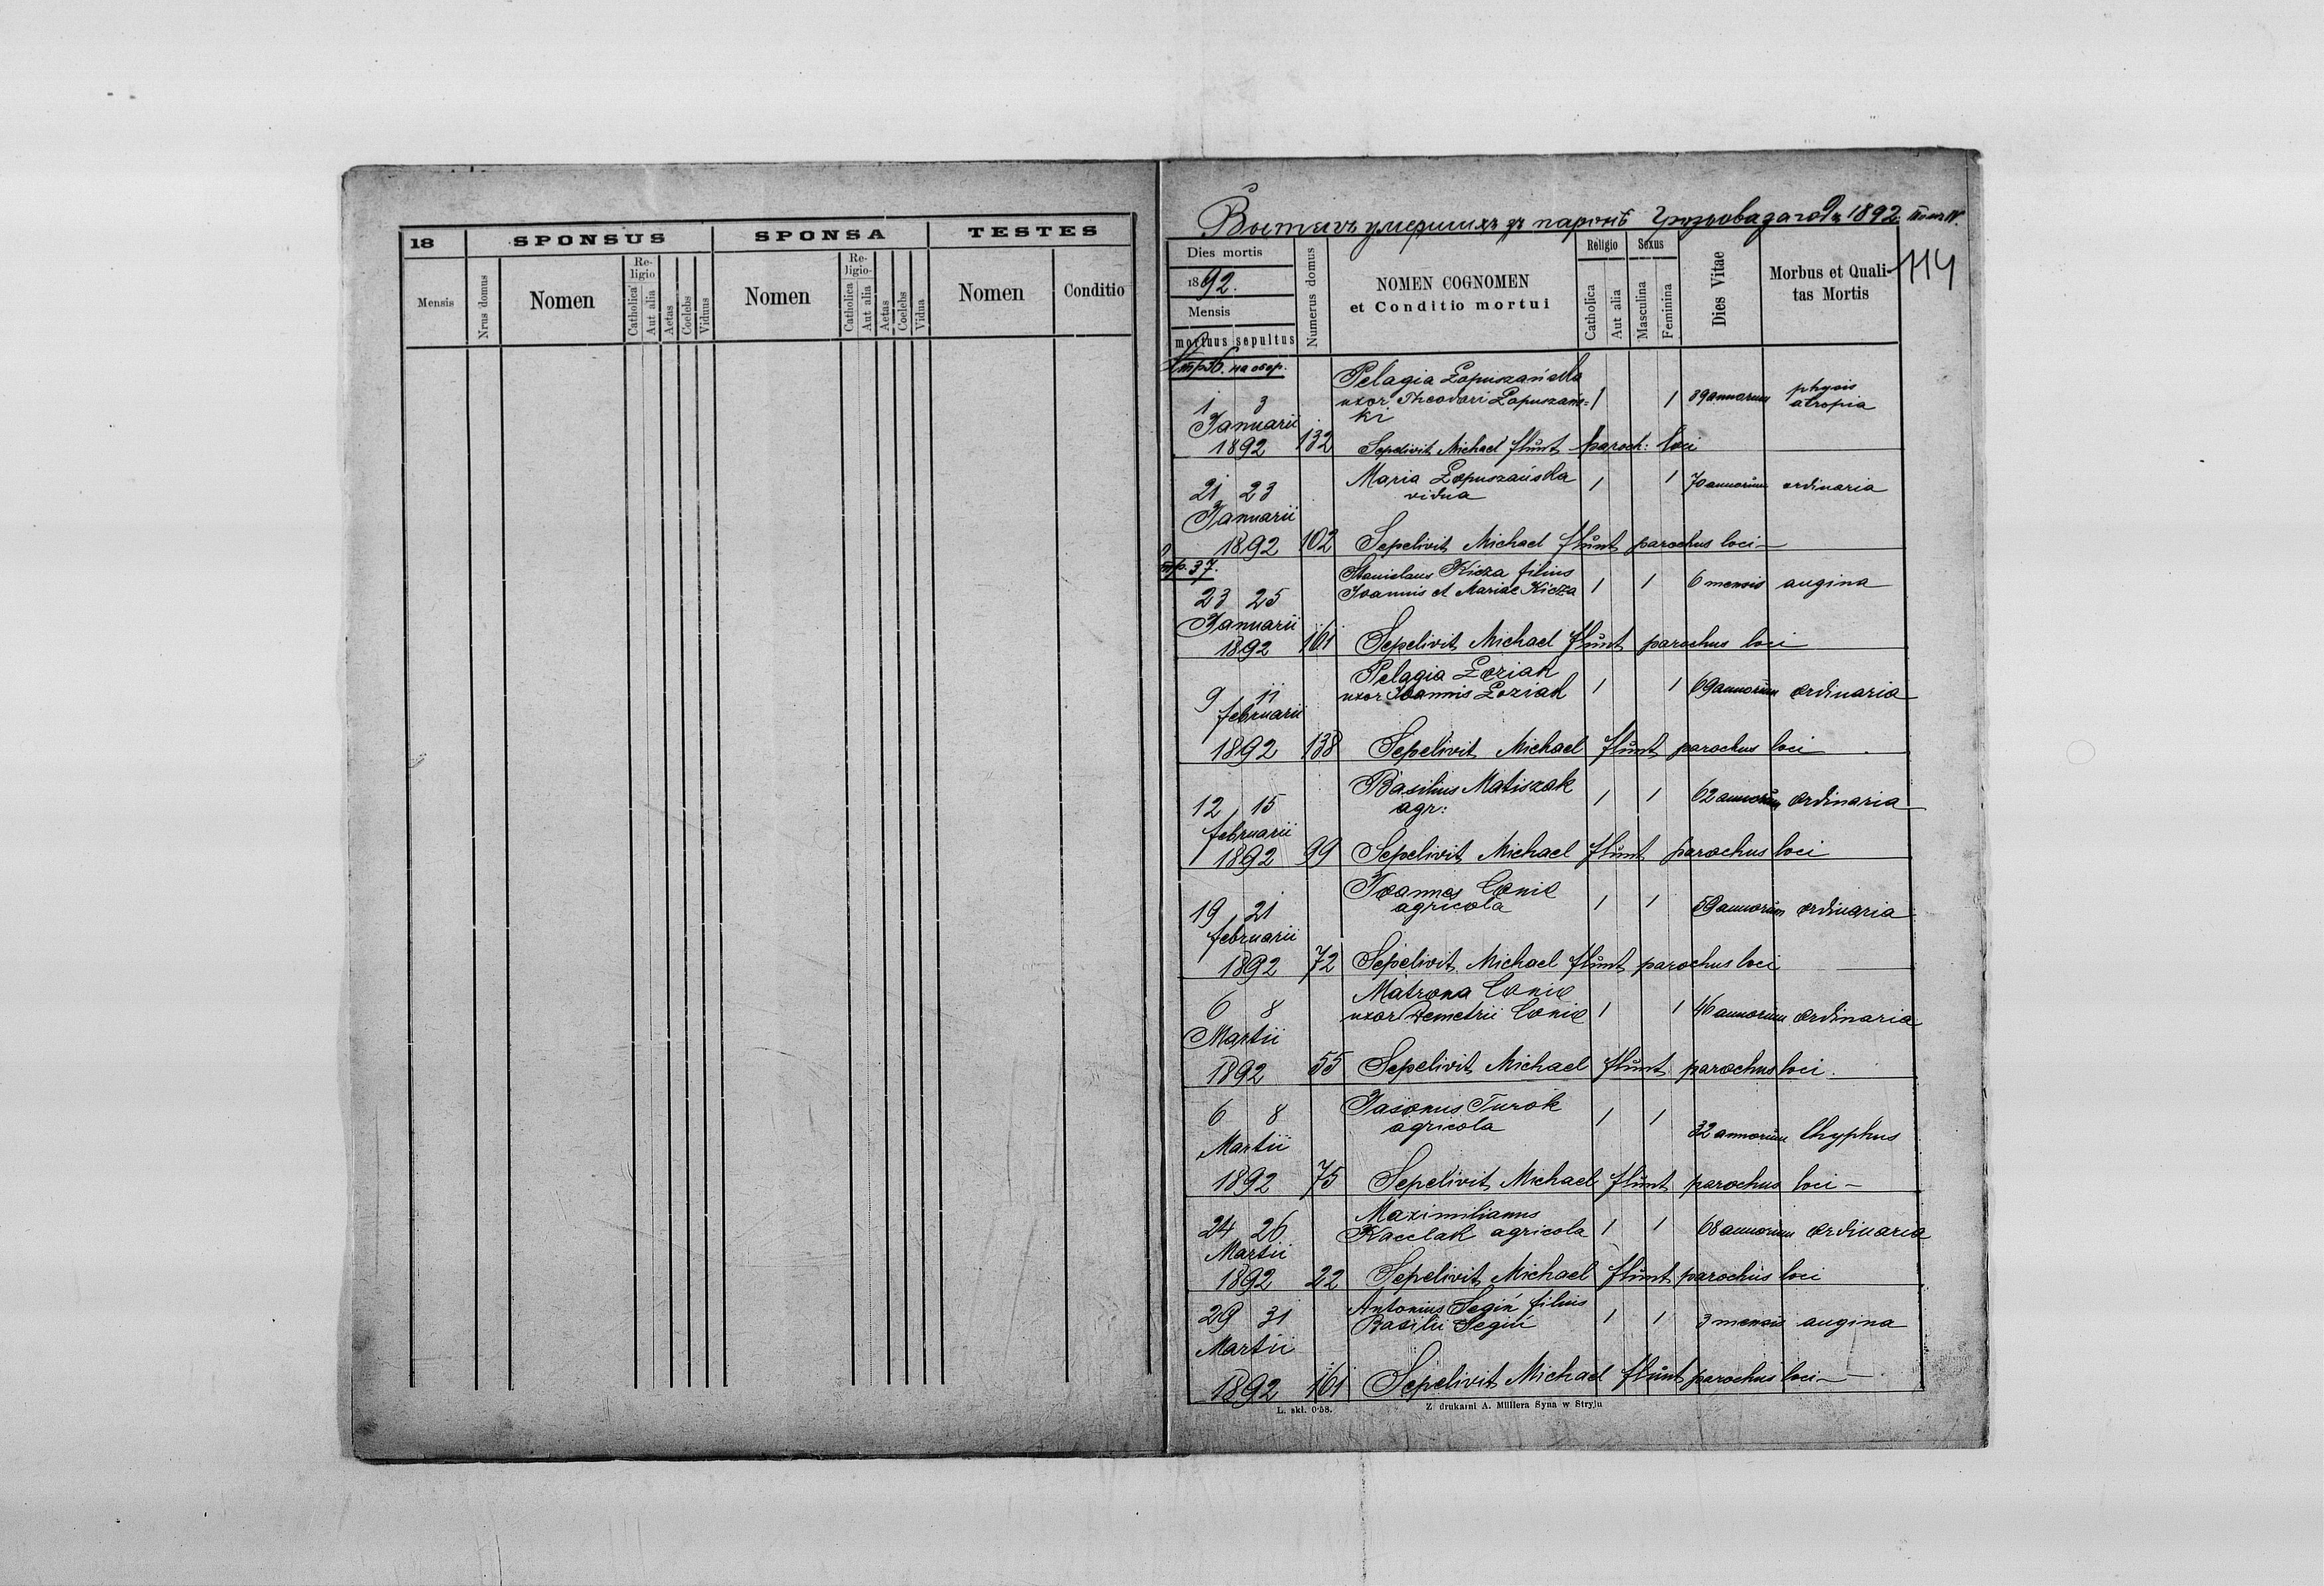 18 SPONSUS SPONSA TESTES
Mensis Nrus domus Nomen Religio Catholica Aut alia Aetas Coelebs Viduus Nomen Religio Catholica Aut alia Aetas Coelebs Vidua Nomen Conditio
Вытягъ умершихъ въ парохіѣ за годъ 1892 Томъ IV.
114
Dies mortis
1892.
Mensis
mortuus sepultus
Numerus domus
NOMEN COGNOMEN
et Conditio mortui
Religio
Catholica
Aut alia
Sexus
Masculina
Feminina
Dies Vitae
Morbus et Quali-
tas Mortis
на обор.
Pelagia Łopuszańska
1 3 uxor Theodori Łopuszańs= 1 1 39 annorum physis
Januarii ki atropia
1892 132 Sepelivit Michael Flunt paroch: loci
21 23 Maria Łopuszańska 1 1 70 annorum ordinaria
vidua
Januarii
1892 102 Sepelivit Michael Flunt parochus loci
стр. 37.
Stanislaus Kicza filius
23 25 Joannis et Mariae Kicza 1 1 6 mensis angina
Januarii
1892 161 Sepelivit Michael Flunt parochus loci
Pelagia Łoziak
9 11 uxor Joannis Łoziak 1 1 69 annorum ordinaria
februarii
1892 138 Sepelivit Michael Flunt parochus loci
Basilius Matiszak
12 15 agr: 1 1 62 annorum ordinaria
februarii
1892 99 Sepelivit Michael Flunt parochus loci
Joannes Conic
19 21 agricola 1 1 59 annorum ordinaria
februarii
1892 72 Sepelivit Michael Flunt parochus loci
Matrona Conic
6 8 uxor Demetrii Conic 1 1 46 annorum ordinaria
Martii
1892 55 Sepelivit Michael Flunt parochus loci.
6 8 Jasonus Turok 1 1
agricola 32 annorum thyphus
Martii
1892 75 Sepelivit Michael Flunt parochus loci
Maximilianus
24 26 Kacclak agricola 1 1 68 annorum ordinaria
Martii
1892 22 Sepelivit Michael Flunt parochus loci
Antonius Segin filius
29 31 Basilii Segin 1 1 3 mensis angina
Martii
1892 161 Sepelivit Michael Flunt parochus loci
L. skł. 0·58. Z drukarni A. Müllera Syna w Stryju